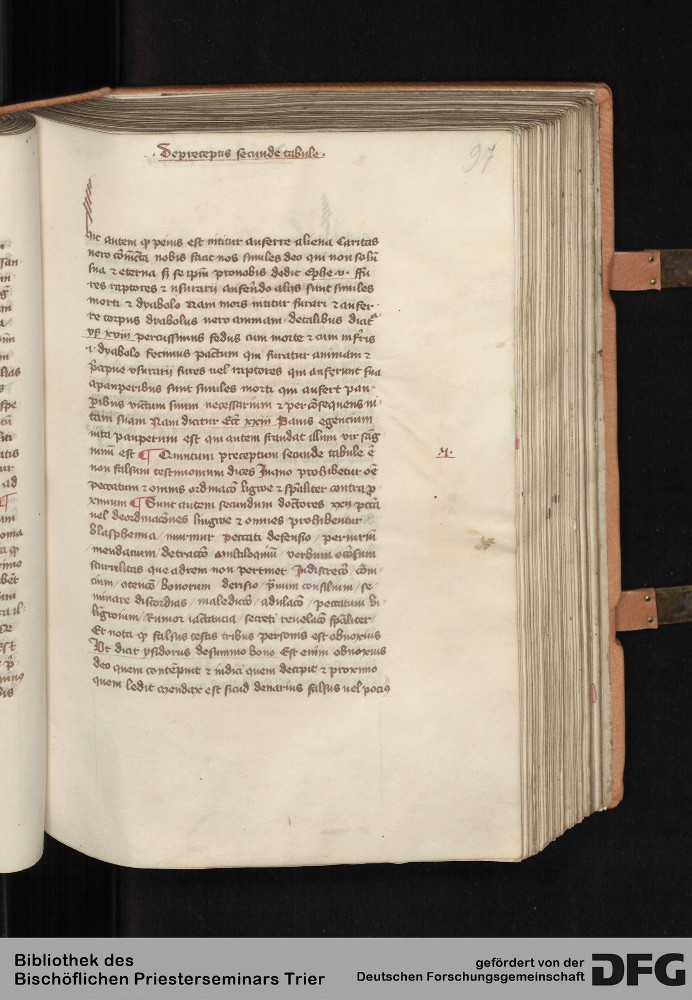 · De preceptis secunde tabule ·
97
Hic autem qp peius est nititur auferre aliena Caritas
nero facit nos similes deo qui non solū
sua z eterna sꝫ seip̄m pro nobis dedit Ephe v·
res raptores z usurarii auferēdo aliis sunt similes
morti z dyabolo Nam mors nititur furari z aufer-
re corpus dyabolus vero animam de talibus dicit̄
xviii percussimus fedus cum morte z cum inf̄ris
·i· dyabolo fecimus pactum qui furatur animam z
p̄cipue usurarii fures uel raptores qui auferunt sua
a pauperibus sunt similes morti qui aufert pau-
p̄ibus victum suum necessarium z per cōsequens ui-
tam suam Nam dicitur Ecc̄ xxiii Panis egencium
uita pauperum est qui autem fraudat illum vir sāg
uinū est ¶ Quintum preceptum secunde tabule ē
non falsum testimonium dices In quo prohibetur oē
peccatum z omnis ligwe z sp̄aliter contra p̄
ximum ¶ Sunt autem secundum doctores xxii pctā
uel deordinacōnes lingwe z omnes prohibentur
blasphemia / murmur / peccati defensio / periuriū
mendacium detractō Multiloquiū / verbum ociosum
scurrilitas que ad rem non pertinet Indiscretō / cōm
bonorum derisio / consilium / se
minare discordias / maledictō / adulacō / peccatum bi
ligwium / Rumor iactancia / secreti reuelacō sp̄aliter
Et nota qp falsus testis tribus personis est obnoxius
Ut dicit ysidorus de summo bono Est enim obnoxius
deo quem contēpnit z iudici quem decipit z proximo
quem ledit mendax est sicud denarius falsus uel pociꝰ
Bibliothek des
Bischöflichen Priesterseminars Trier
gefördert von der
Deutschen Forschungsgemeinschaft
DFG